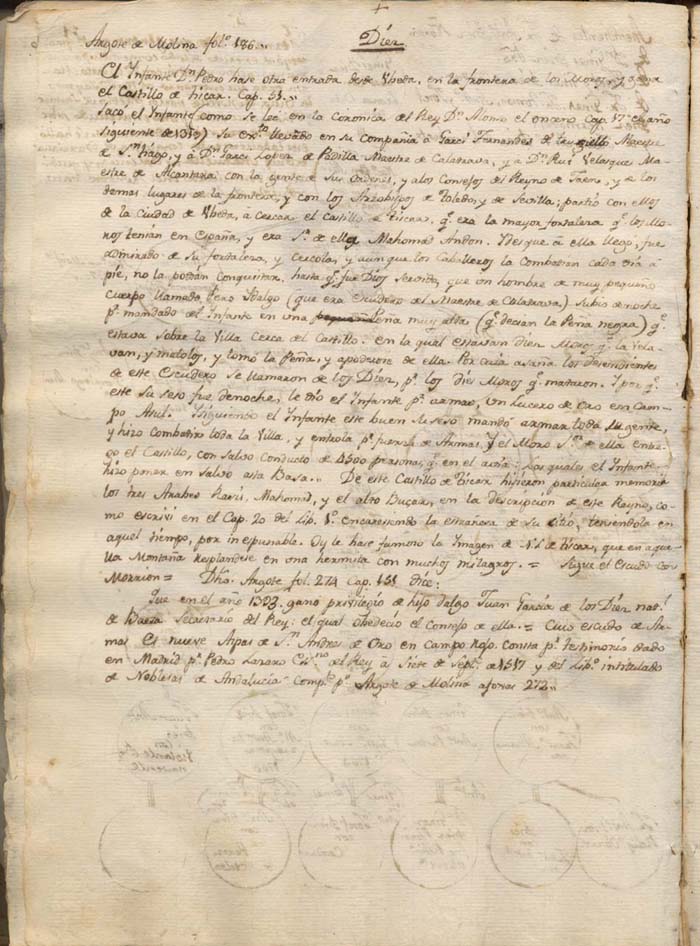 +
Argote de Molina fol.º 186..
Diez
El Infante D.n Pedro hase otra entrada desde Vbeda, en la frontera de los Moros, y gana
el Castillo de Ticar. Cap. 51..
Sacò el Infante como se lee en la Coronica del Rey D.n Alonso el onceno Cap. 17 el año
siguiente de 1319) Su llevando en su compañia à Garci Fernandes de Maestre
de S.n Tiago, y à D.n Garci Lopez de Padilla Maestre de Calatrava, y a D.n Rui Velasques Ma-
estre de Alcantara con la gente de sus Ordenes, y alos Consejos del Reyno de Jaen, y de los
demas lugares de la frontera, y con los Arzobispos de Toledo, y de Sevilla; partiò con ellos
de la ciudad de Vbeda, à cercar el Castillo de Ticar, q.e era la mayor fortalesa q.e los Mo-
ros tenian en España, y era S.r de ella Mahomad Andon. Y desque à ella llegò, fue
admirado de su fortalesa, y cercola, y aunque los Caballeros la combatian cada dia à
pie, no la podian conquistar. hasta q.e fue Dios servido, que un hombre de muy pequeño
cuerpo llamado Pero Hidalgo (que era Escudero del Maestre de Calatrava) Subiò de noche
p.r mandado del Infante en una Peña muy alta (q.e decian la Peña negra) q.e
estava sobre la Villa cerca del Castillo. en la qual estavan diez Moros q.e la vela-
van, y matolos, y tomò la Peña, y apoderose de ella. Por cuia asaña los desendientes
de este Escudero se llamaron de los Diez, p.r los diez Moros q.e mataron. Y por q.e
este suseso fue denoche, le diò el Infante p.r armas, un Lucero de Oro en Cam-
po Azul. Siguiendo el Infante este buen suseso mandò armar toda su gente,
y hizo combatir toda la Villa, y entrola p.r fuerza de Armas. Y el Moro S.r de ella entre-
gò el Castillo, con salvo conducto de 4500 personas q.e en el avia: Los quales el Infante
hizo poner en salvo asta Basa.. De este Castillo de Ticar hisieron particular memoria
los tres Arabes Rasis, Mahomad, y el otro Buçar, en la descripcion de este Reyno, co-
mo escrivi en el Cap. 20 del Lib. 1.º encaresiendo la estrañesa de su sitio, teniendola en
aquel tiempo, por inespunable. Oy le hase famoso la Imagen de N. S. de Ticar, que en aque-
lla Montaña resplandese en una hermita con muchos milagros. = Sigue el Escudo con
Morrion = Dho. Argote fol. 274 Cap. 151 dice:
Que en el año 1393. ganò privilegio de hijo dalgo Juan Garcia de los Diez nat.l
de Baeza Secretario del Rey: el qual obedeciò el consejo de ella. = Cuio escudo de Ar-
mas Es nueve Aspas de S.n Andres de Oro en campo Rojo. Consta p.r testimonio dado
en Madrid p.r Pedro Lazaro Es.no del Rey à Siete de Sept.e de 1517 y del Lib.º intitulado
de Noblesas de Andalucia comp.to p.r Argote de Molina afojas 272..